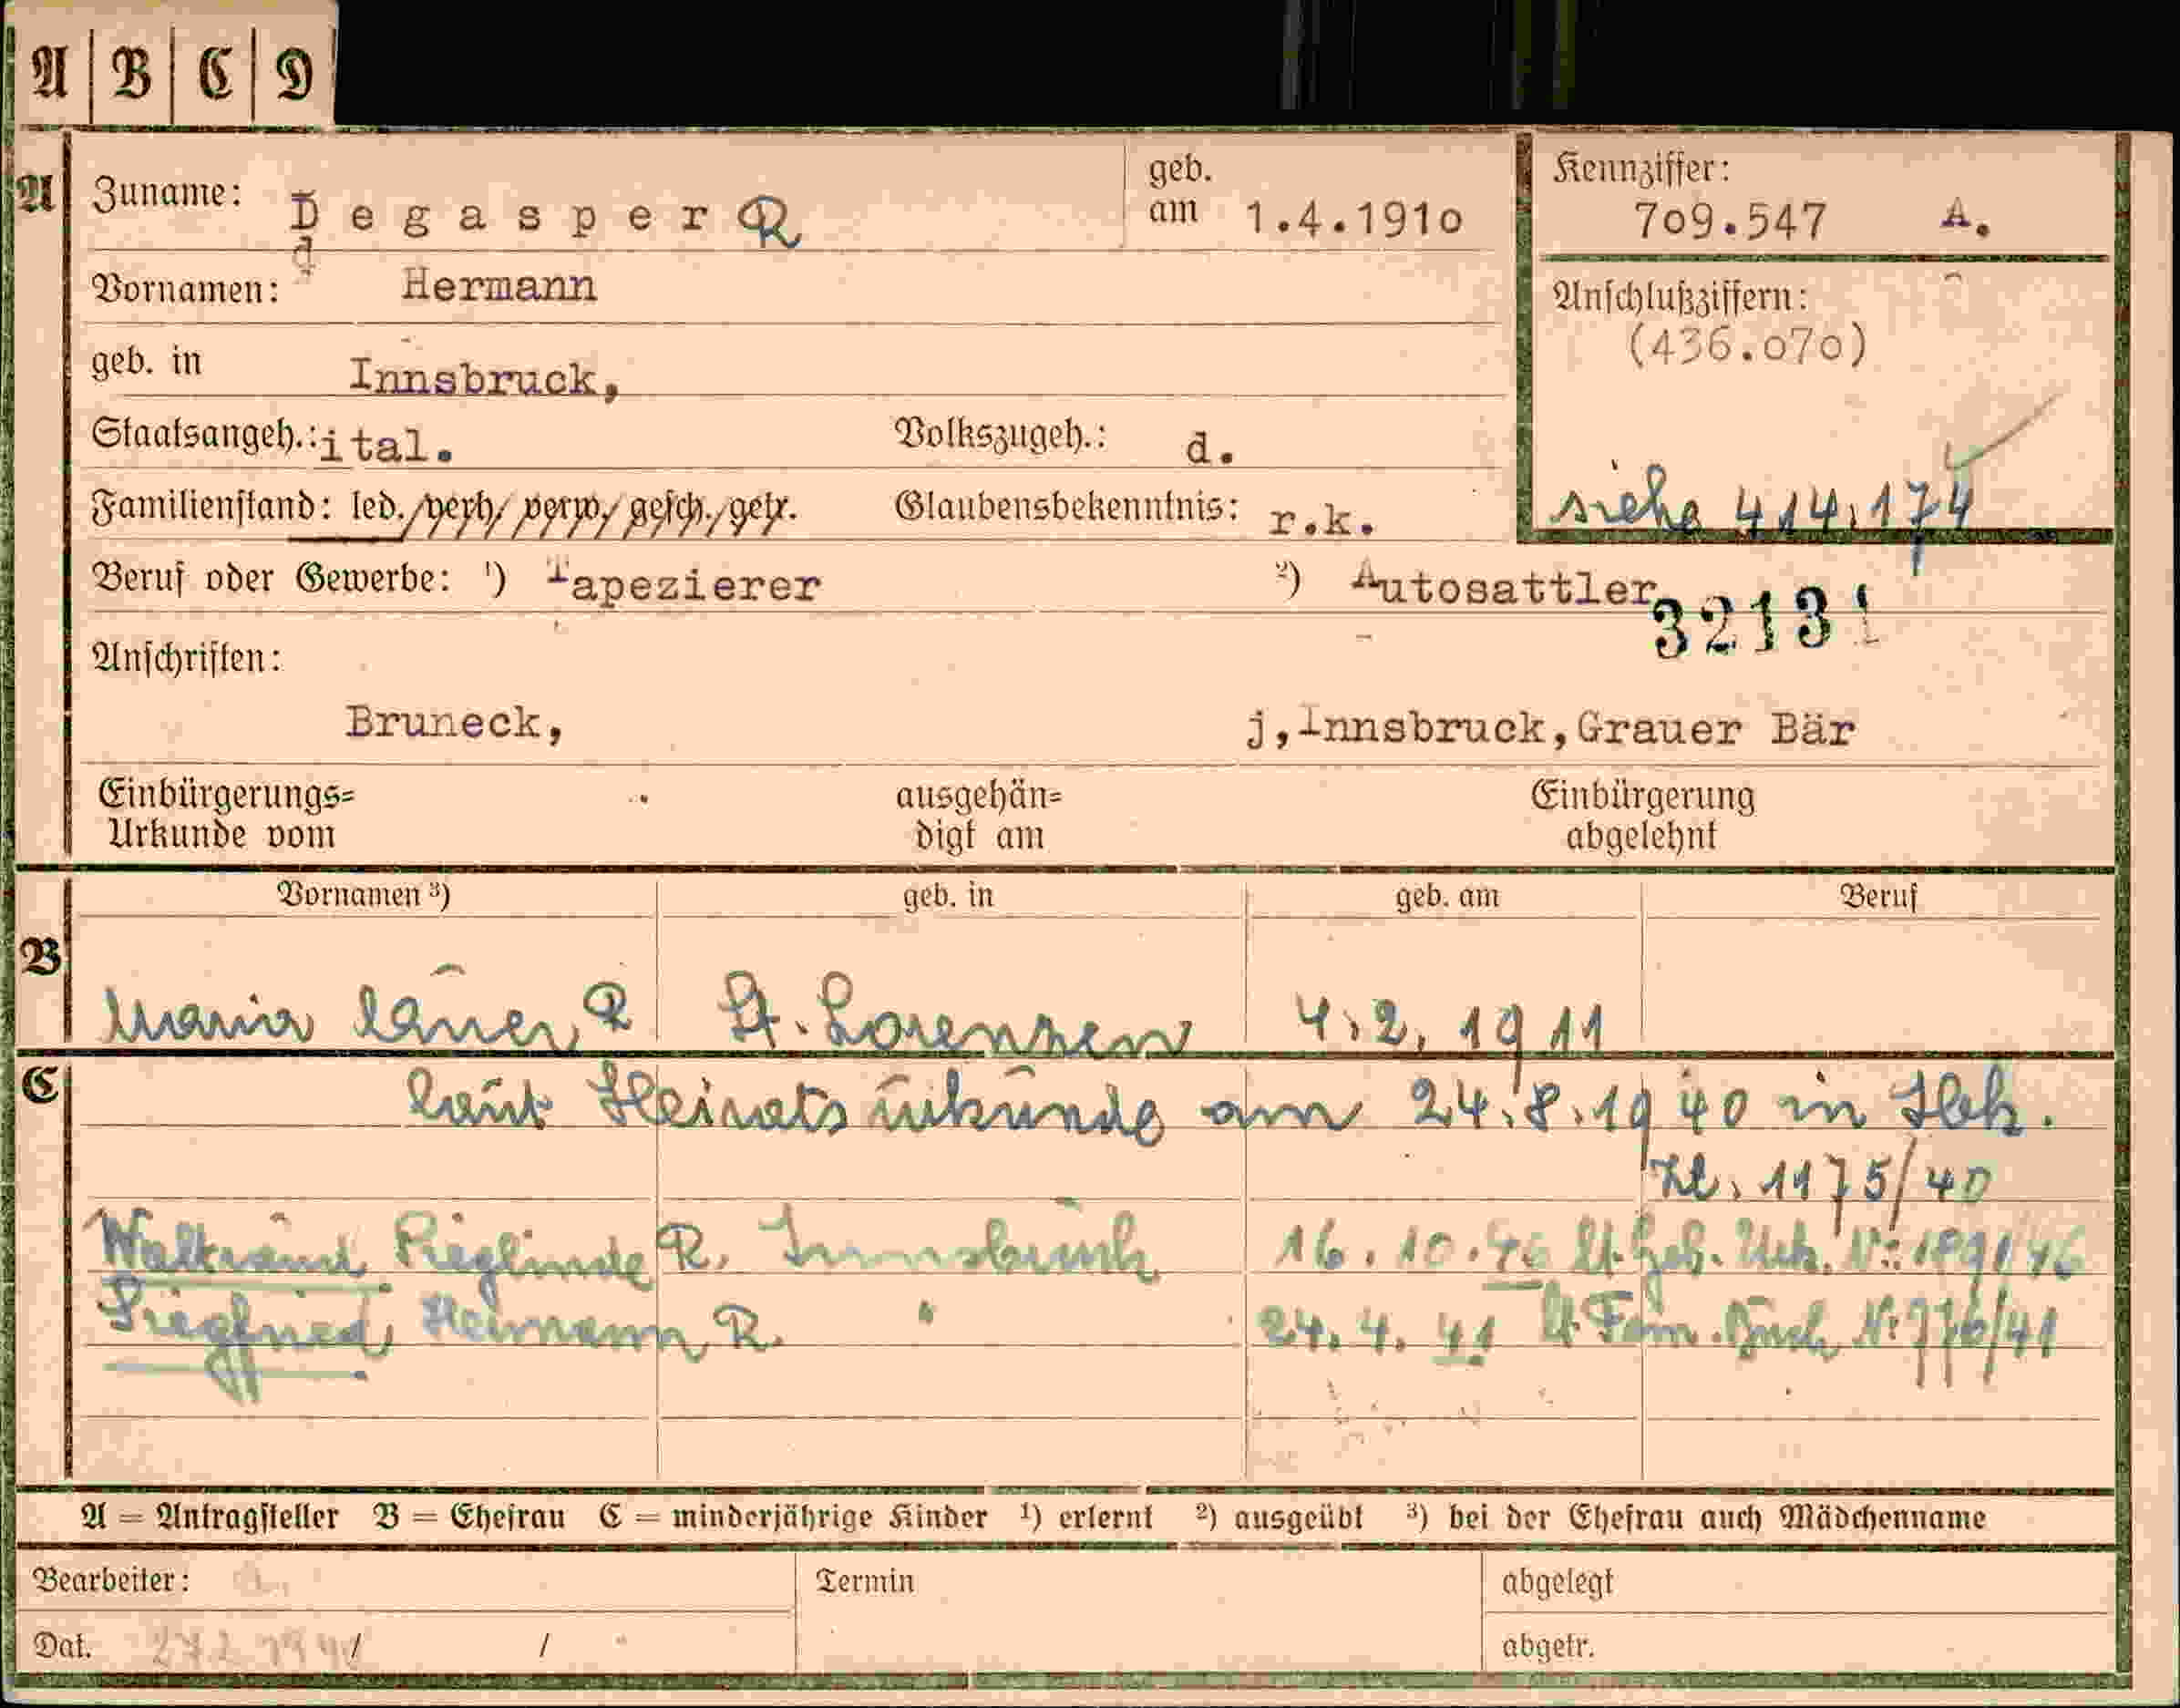 A | B | C | D
A Zuname: Degasper R geb. am 1.4.1910 Kennziffer: 709.547 A.
Vornamen: Hermann Anschlußziffern: (436.070)
geb. in Innsbruck,
Staatsangeh.: ital. Volkszugeh.: d.
Familienstand: led./verh/verw/gesch./getr. Glaubensbekenntnis: r.k. siehe 414.174
Beruf oder Gewerbe: ¹) Tapezierer ²) Autosattler
32131
Anschriften:
Bruneck, j,Innsbruck,Grauer Bär
Einbürgerungs= ausgehän= Einbürgerung
Urkunde vom digt am abgelehnt
Vornamen ³) geb. in geb. am Beruf
B Maria R St. Lorenzen 4.2.1911
C laut Heiratsurkunde am 24.8.1940 in Ibk.
Zl. 1175/40
Waltraud Sieglinde R. Innsbruck 16.10.46 lt. Geb. Urk. Nr. 1891/46
Siegfried Hermann R. " 24.4.41 lt. Fam. Buch Nr 776/41
A = Antragsteller B = Ehefrau C = minderjährige Kinder ¹) erlernt ²) ausgeübt ³) bei der Ehefrau auch Mädchenname
Bearbeiter: Termin abgelegt
Dat. / / abgetr.